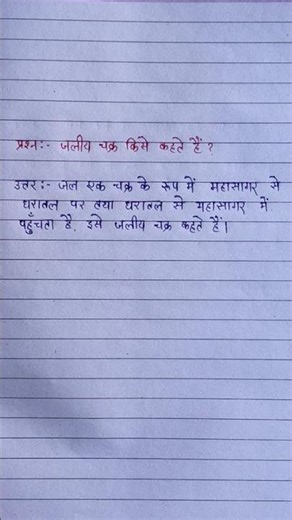 प्रश्न:- जलीय चक्र किसे कहते हैं ?
उत्तर:- जल एक चक्र के रूप में महासागर से
धरातल पर तथा धरातल से महासागर में
पहुँचता है, इसे जलीय चक्र कहते हैं।